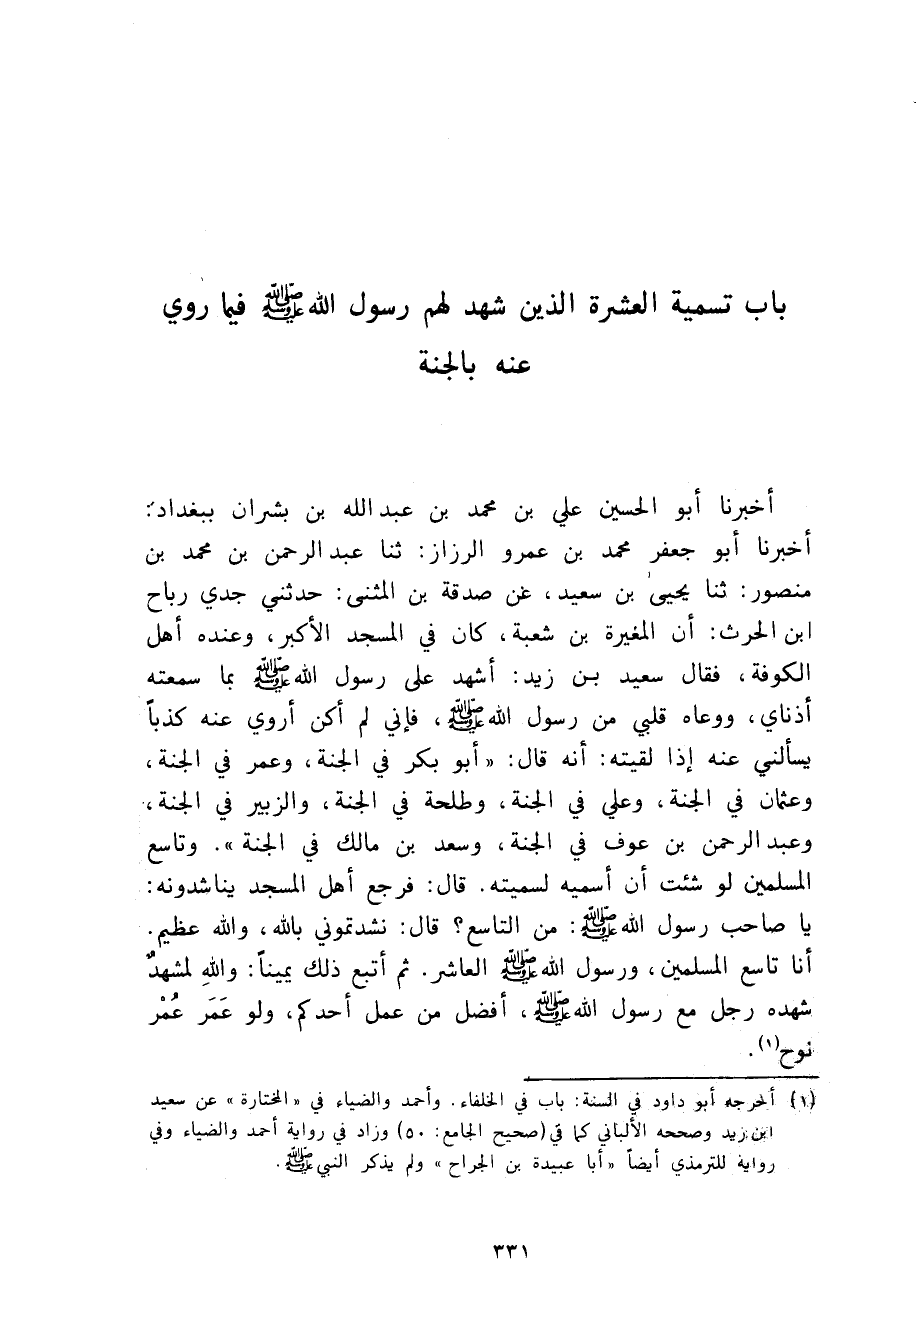 باب تسمية العشرة الذين شهد لهم رسول الله ﷺ فيما روي
عنه بالجنة
أخبرنا أبو الحسين علي بن محمد بن عبدالله بن بشران ببغداد:
أخبرنا أبو جعفر محمد بن عمرو الرزاز: ثنا عبد الرحمن بن محمد بن
منصور: ثنا يحيى بن سعيد، عن صدقة بن المثنى: حدثني جدي رباح
ابن الحرث: أن المغيرة بن شعبة، كان في المسجد الأكبر، وعنده أهل
الكوفة، فقال سعيد بن زيد: أشهد على رسول الله ﷺ بما سمعته
أذناي، ووعاه قلبي من رسول الله ﷺ، فإني لم أكن أروي عنه كذباً
يسألني عنه إذا لقيته: أنه قال: «أبو بكر في الجنة، وعمر في الجنة،
وعثمان في الجنة، وعلي في الجنة، وطلحة في الجنة، والزبير في الجنة،
وعبد الرحمن بن عوف في الجنة، وسعد بن مالك في الجنة». وتاسع
المسلمين لو شئت أن أسميه لسميته. قال: فرجع أهل المسجد يناشدونه:
يا صاحب رسول الله ﷺ: من التاسع؟ قال: نشدتموني بالله، والله عظيم.
أنا تاسع المسلمين، ورسول الله ﷺ العاشر. ثم أتبع ذلك يميناً: واللهِ لمشهدٌ
شهده رجل مع رسول الله ﷺ، أفضل من عمل أحدكم، ولو عَمَر عُمْر
نوح(١).
(١) أخرجه أبو داود في السنة: باب في الخلفاء. وأحمد والضياء في «المختارة» عن سعيد
ابن زيد وصححه الألباني كما في (صحيح الجامع: ٥٠) وزاد في رواية أحمد والضياء وفي
رواية للترمذي أيضاً «أبا عبيدة بن الجراح» ولم يذكر النبي ﷺ.
٣٣١